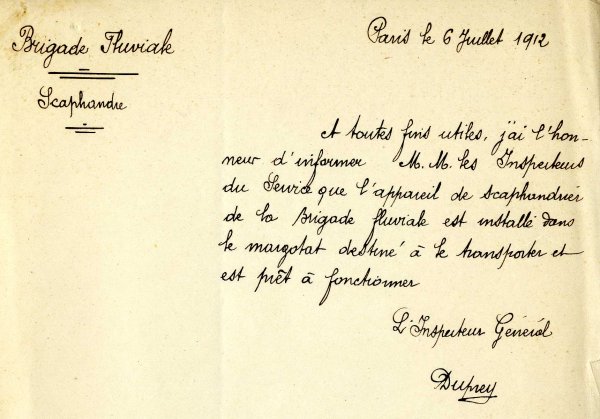 Brigade Fluviale
Paris le 6 Juillet 1912
Scaphandre
A toutes fins utiles, j'ai l'hon-
neur d'informer M.M. les Inspecteurs
du Service que l'appareil de scaphandrier
de la Brigade fluviale est installé dans
le margotat destiné à le transporter et
est prêt à fonctionner
L'Inspecteur Général
Duprey